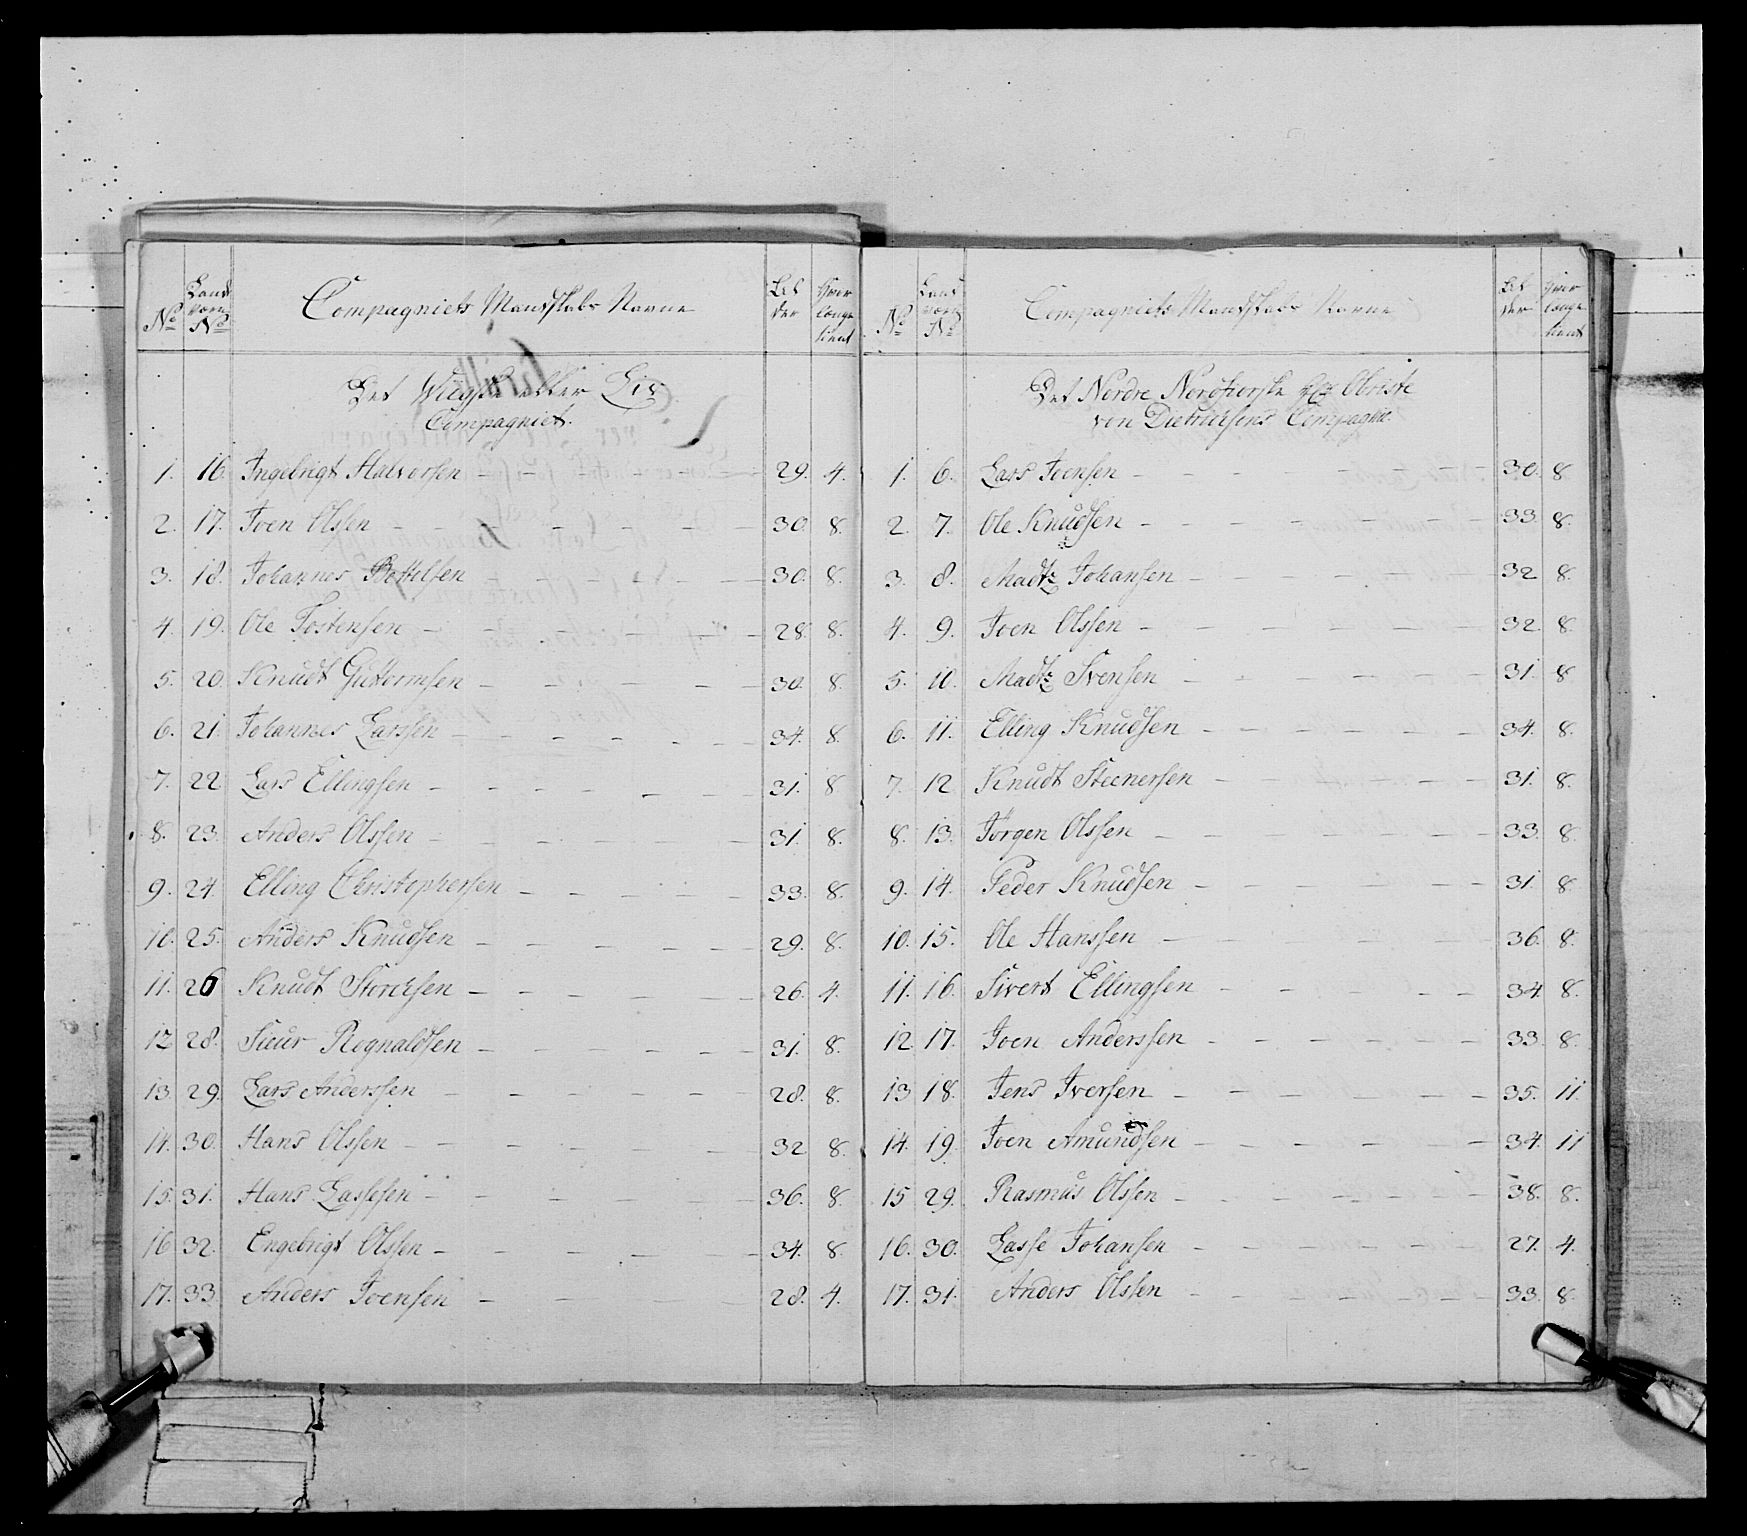 No Land vern No Compagniets Mandskabs Navne Al der Hvor længe tient
Det Wiigske eller Liv
Compagniet.
1. 16. Ingebrigt Halvorsen 29. 4.
2. 17. Joen Olssen 30. 8.
3. 18. Johannes Bottelsen 30. 8.
4. 19. Ole Tostensen 28. 8.
5. 20. Knudt Guttormsen 30. 8.
6. 21. Johannes Larssen 34. 8.
7. 22 Lars Ellingsen 31. 8
8. 23. Anders Olssen 31. 8.
9. 24. Elling Christophersen 33. 8.
10. 25. Anders Knudsen 29. 8.
11. 26 Knudt Storchsen 26. 4.
12 28. Sieur Rognaldsen 31. 8.
13. 29. Lars Anderssen 28. 8.
14. 30. Hans Olssen 32 8.
15. 31. Hans Lassesen 36. 8.
16 32. Engebrigt Olssen 34. 8.
17. 33. Anders Joensen 28. 4.
No Land vern No Compagniets Mandskabs Navne Al der Hvor længe tient
Det Nordre Nordfiorske Obriste
von Dietrichsens Compagnie.
1. 6. Lars Joensen 30. 8
2. 7. Ole Knudsen 33. 8.
3. 8. Madtz Johansen 32 8.
4. 9. Joen Olssen 32. 8.
5. 10. Madtz Svensen 31. 8
6. 11. Elling Knudsen 34. 8.
7. 12 Knudt Steenersen 31. 8.
8. 13. Jörgen Olssen 33. 8.
9. 14. Peder Knudsen 31. 8
10. 15. Ole Hanssen 36. 8.
11. 16. Sivert Ellingsen 34. 8.
12. 17. Joen Anderssen 33. 8.
13 18. Jens Iversen 35. 11.
14. 19. Joen Amundsen 34. 11
15 29. Rasmus Olssen 38. 8.
16. 30. Lasse Johansen 27. 4.
17. 31. Anders Olssen 33. 8.